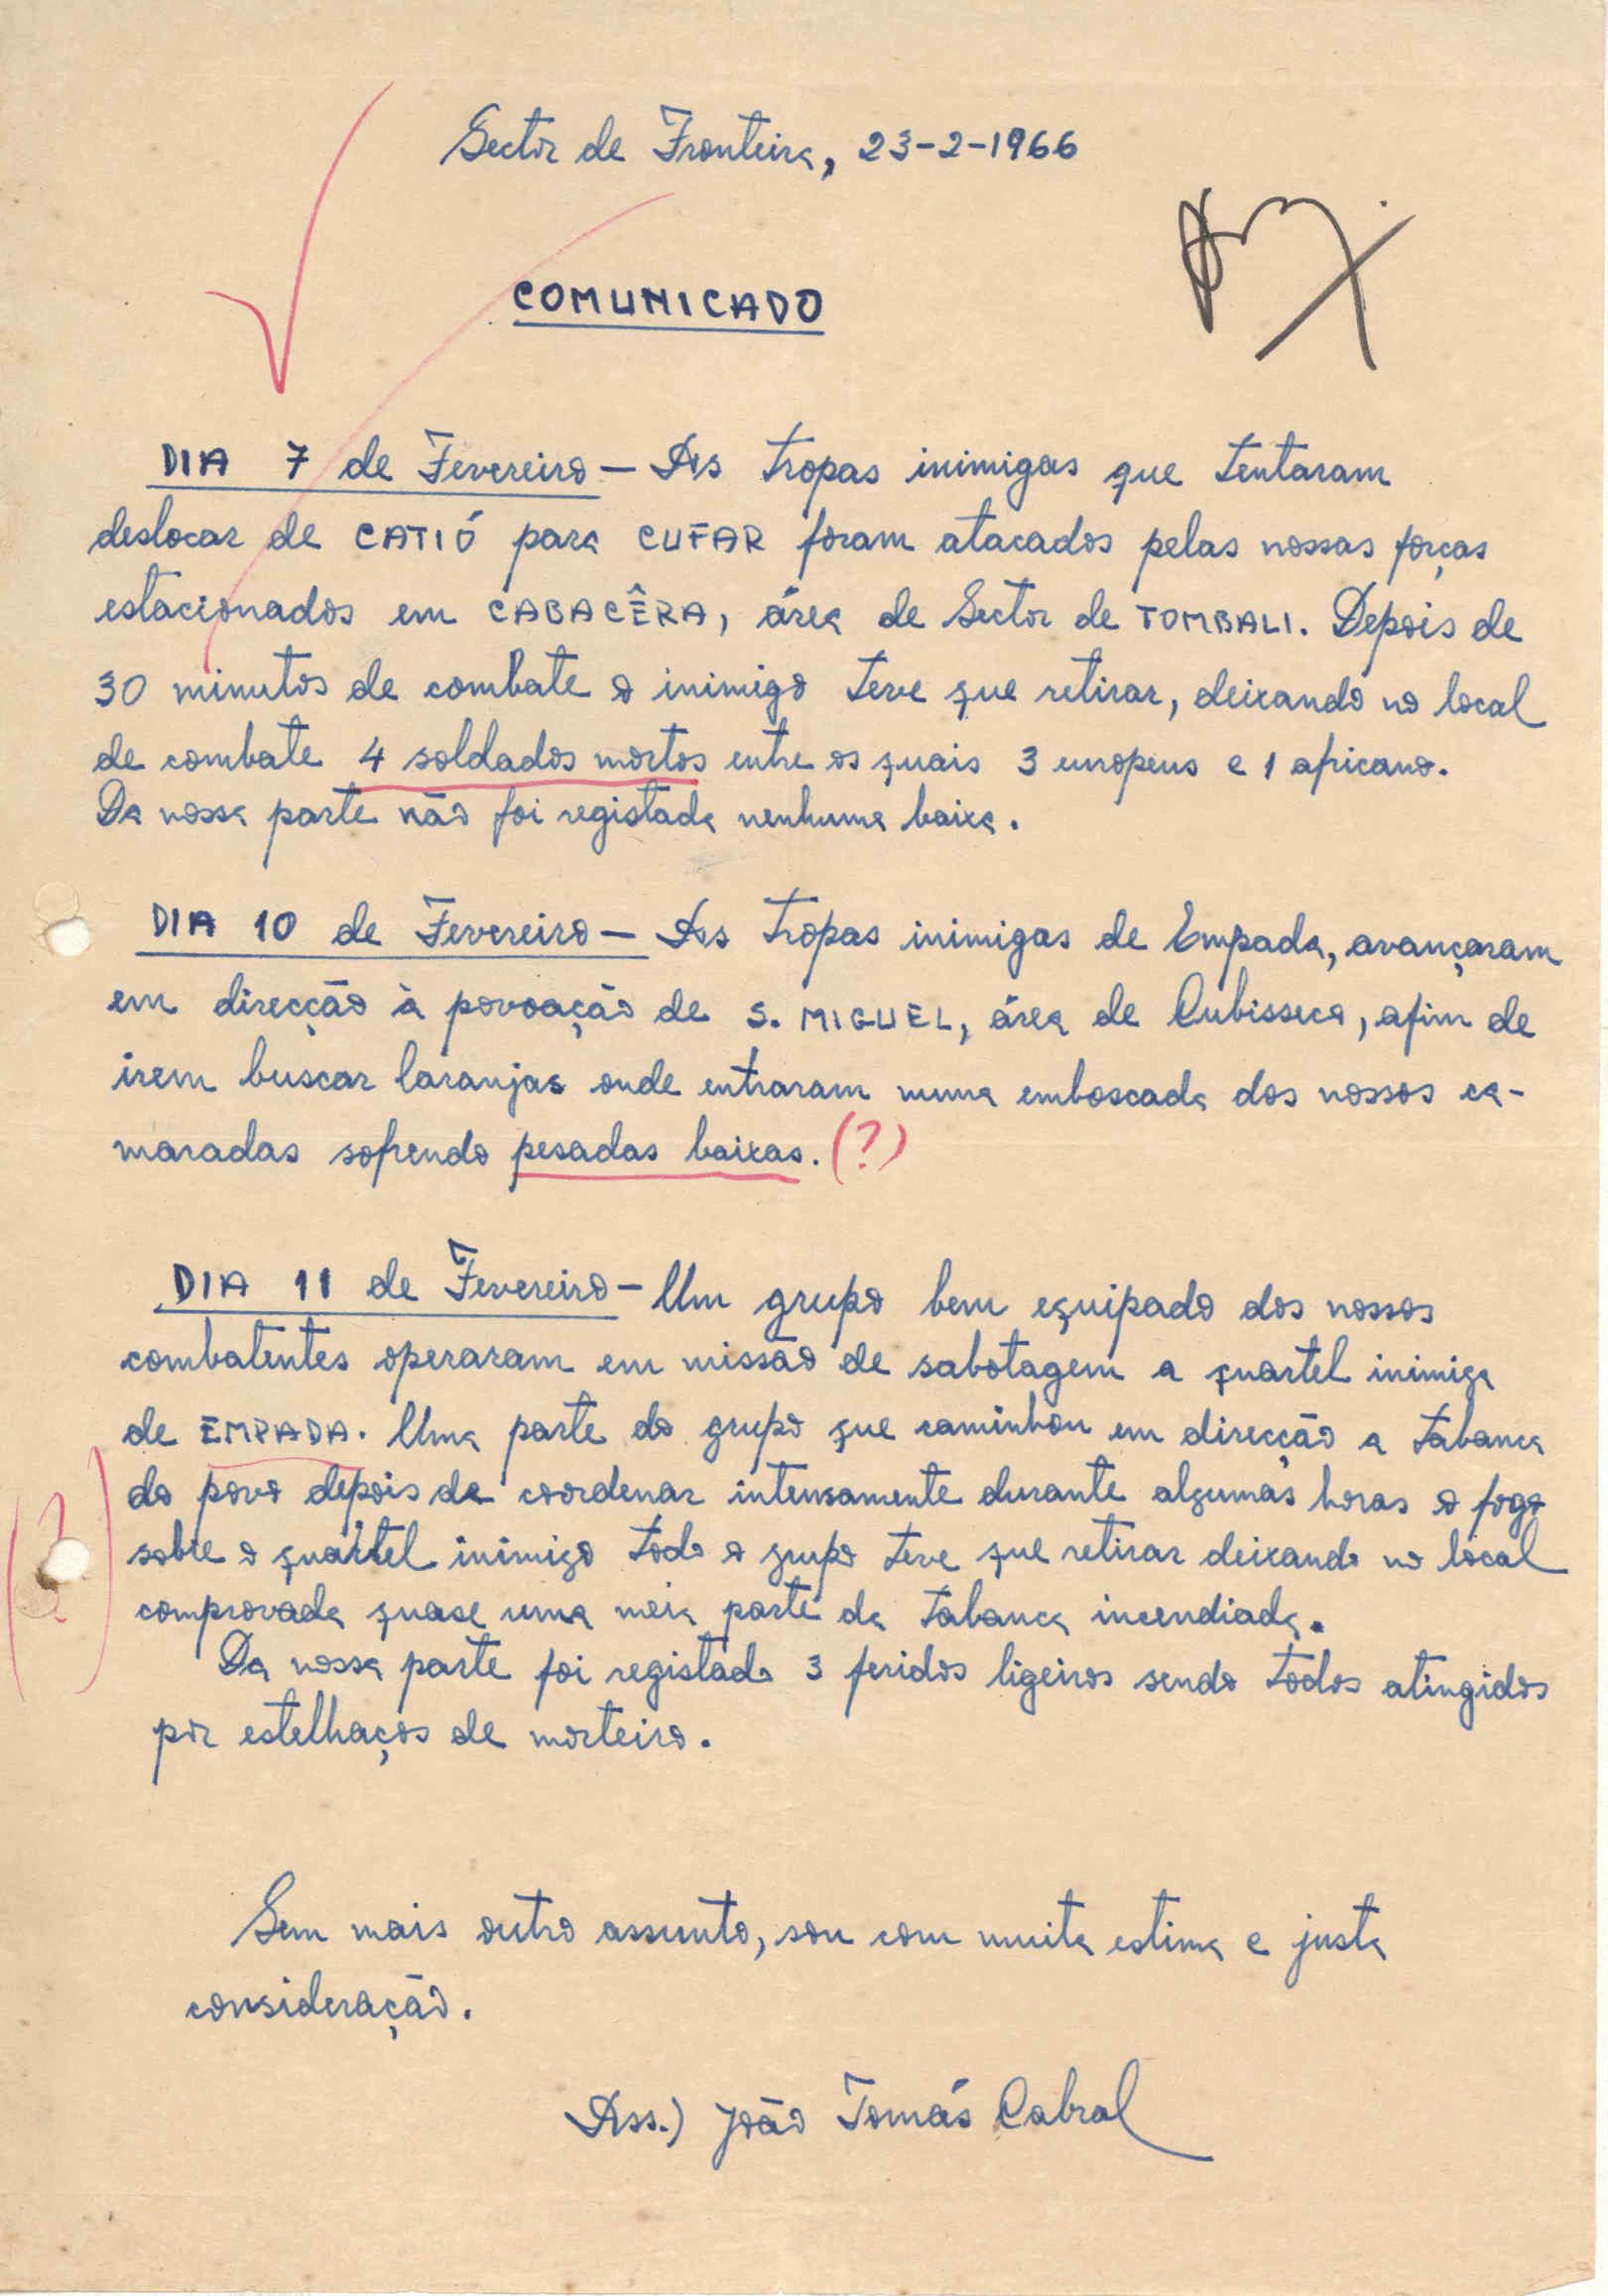 Sector de Fronteira, 23-2-1966
COMUNICADO
DIA 7 de Fevereiro — As tropas inimigas que tentaram
deslocar de CATIÓ para CUFAR foram atacados pelas nossas forças
estacionados em CABACÊRA, área de Sector de TOMBALI. Depois de
30 minutos de combate o inimigo teve que retirar, deixando no local
de combate 4 soldados mortos entre os quais 3 europeus e 1 africano.
Da nossa parte não foi registada nenhuma baixa.
DIA 10 de Fevereiro — As tropas inimigas de Empada, avançaram
em direcção à povoação de S. MIGUEL, área de Cubisseca, afim de
irem buscar laranjas onde entraram numa emboscada dos nossos ca-
maradas sofrendo pesadas baixas. (?)
DIA 11 de Fevereiro — Um grupo bem equipado dos nossos
combatentes operaram em missão de sabotagem a quartel inimiga
de EMPADA. Uma parte do grupo que caminhou em direcção a tabanca
do povo depois de coordenar intensamente durante algumas horas o fogo
(?)
sobre o quartel inimigo todo o grupo teve que retirar deixando no local
comprovada quase uma meia parte da tabanca incendiada.
Da nossa parte foi registado 3 feridos ligeiros sendo todos atingidos
por estelhaços de morteiro.
Sem mais outro assunto, sou com muita estima e justa
consideração.
Ass.) João Tomás Cabral